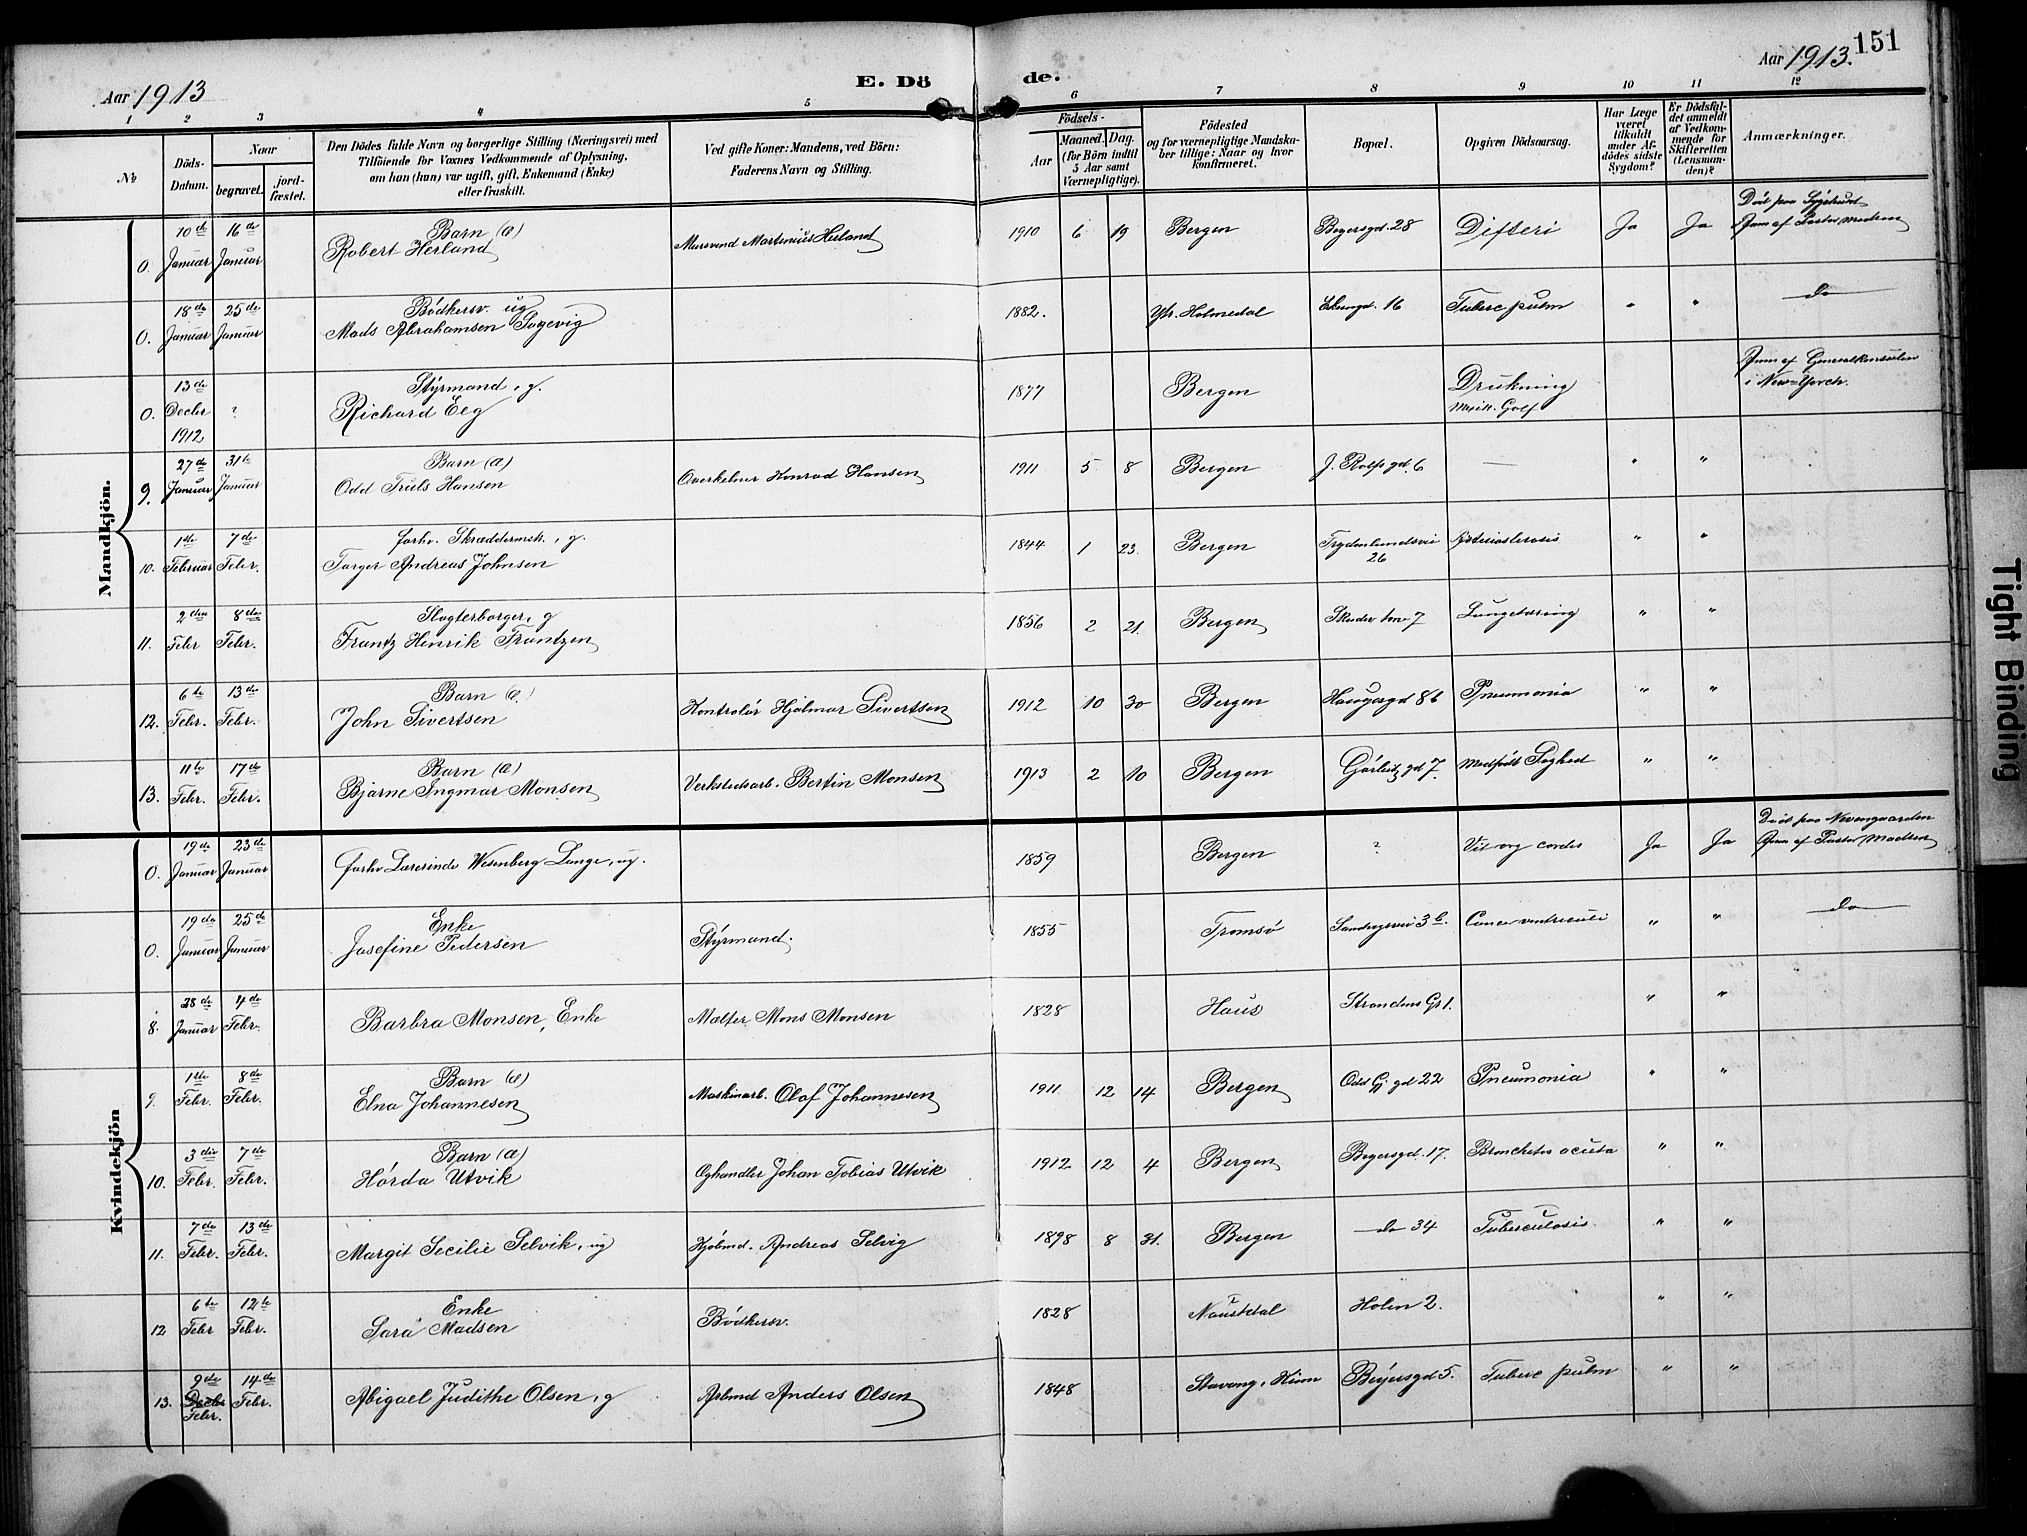 Aar 1913
E. Dö
de.
Aar 1913.
151
1 2 3 4 5 6 7 8 9 10 11 12
No
Döds-
Datum.
Naar
begravet.
jord-
fæstet.
Den Dödes fulde Navn og borgerlige Stilling (Næringsvei) med
Tilföiende for Voxnes Vedkommende af Oplysning,
om han (hun) var ugift, gift, Enkemand (Enke)
eller fraskilt.
Ved gifte Koner: Mandens, ved Börn:
Faderens Navn og Stilling.
Födsels-
Aar
Maaned. Dag.
(for Börn indtil
5 Aar samt
Værnepligtige).
Födested
og for værnepligtige Mandska-
ber tillige: Naar og hvor
konfirmeret.
Bopæl.
Opgiven Dödsaarsag.
Har Læge
været
tilkaldt
under Af-
dödes sidste
Sygdom?
Er Dödsfal-
det anmeldt
af Vedkom-
mende for
Skifteretten
(Lensman-
den)?
Anmærkninger.
Mandkjön.
0. 10de Januar 16de Januar Barn (æ) Robert Herland Mursvend Martinius Herland 1910 6 19 Bergen Beyersgd. 28 Difteri Ja Ja Död paa Sygehuset Anm af Pastor Madsen
0. 18de Januar 25de Januar Bödkersv. ug Mads Abrahamsen Sagevig 1882. Ytr. Holmedal 16 Tuberc pulm " " do
0. 13de Decbr 1912 ? Styrmand, g. Richard Eeg 1877 Bergen Drukning Mexik. Golf Anm af Generalkonsulen i New-Yorck.
9. 27de Januar 31te Januar Barn (æ) Odd Truls Hansen Overkelner Konrad Hansen 1911 5 8 Bergen J. Rolfs gd. 6 — " "
10. 1ste Februar 7de Febr. forhv. Skræddermstr., g. Torger Andreas Johnsen 1844 1 23. Bergen Frydenlundsvei 26 " "
11. 2den Febr 8de Febr. Slagterborger, g Frantz Henrik Frantzen 1856 2 21. Bergen 7 Lungetæring " "
12. 6te Febr. 13de Febr. Barn (æ) John Sivertsen Kontrolör Hjalmar Sivertsen 1912 10 30 Bergen Haugesgd 86 Pneumonia " "
13. 11te Febr. 17de Febr. Barn (æ) Bjarne Ingmar Monsen Verkstedsarb. Bertin Monsen 1913 2 10 Bergen Görlitz gd 7. Medfödt Svaghed " "
Kvindekjön
0. 19de Januar 23de Januar forhv Lærerinde Wesenberg Lange, ug. 1859 Bergen ? Vit. org cordis Ja Ja Död paa Nevengaarden Anm af Pastor Madsen
0. 19de Januar 25de Januar Enke Josefine Pedersen Styrmand. 1855 Tromsö Sandvigsvei 3b. Cancer ventriculi " " do
8. 28de Januar 4de Febr. Barbra Monsen, Enke Matfer Mons Monsen 1828 Haus Strandens Gr 1. " "
9. 1ste Febr. 8de Febr. Barn (æ) Elna Johannesen Maskinarb. Olaf Johannesen 1911 12 14 Bergen Odd Gj. gd 22 Pneumonia " "
10. 3die Febr. 7de Febr. Barn (æ) Hörda Utvik Oghandler Johan Tobias Utvik 1912 12 4 Bergen Beyersgd. 17. Bronchitis acuta " "
11. 7de Febr. 13de Febr. Margit Secilie Selvik, ug Kjöbmd. Andreas Selvig 1898 8 31. Bergen do 34 Tuberculosis " "
12 6te Febr 12te Febr. Enke Sara Madsen Bödkersv. 1828 Naustdal Holen 2. " "
13. 9de Decbr Febr. 14de Febr. Abigael Judithe Olsen, g Arbmd Anders Olsen 1848 Stavang, Kinn Beyersgd 5. Tuberc pulm " "
Tight Binding